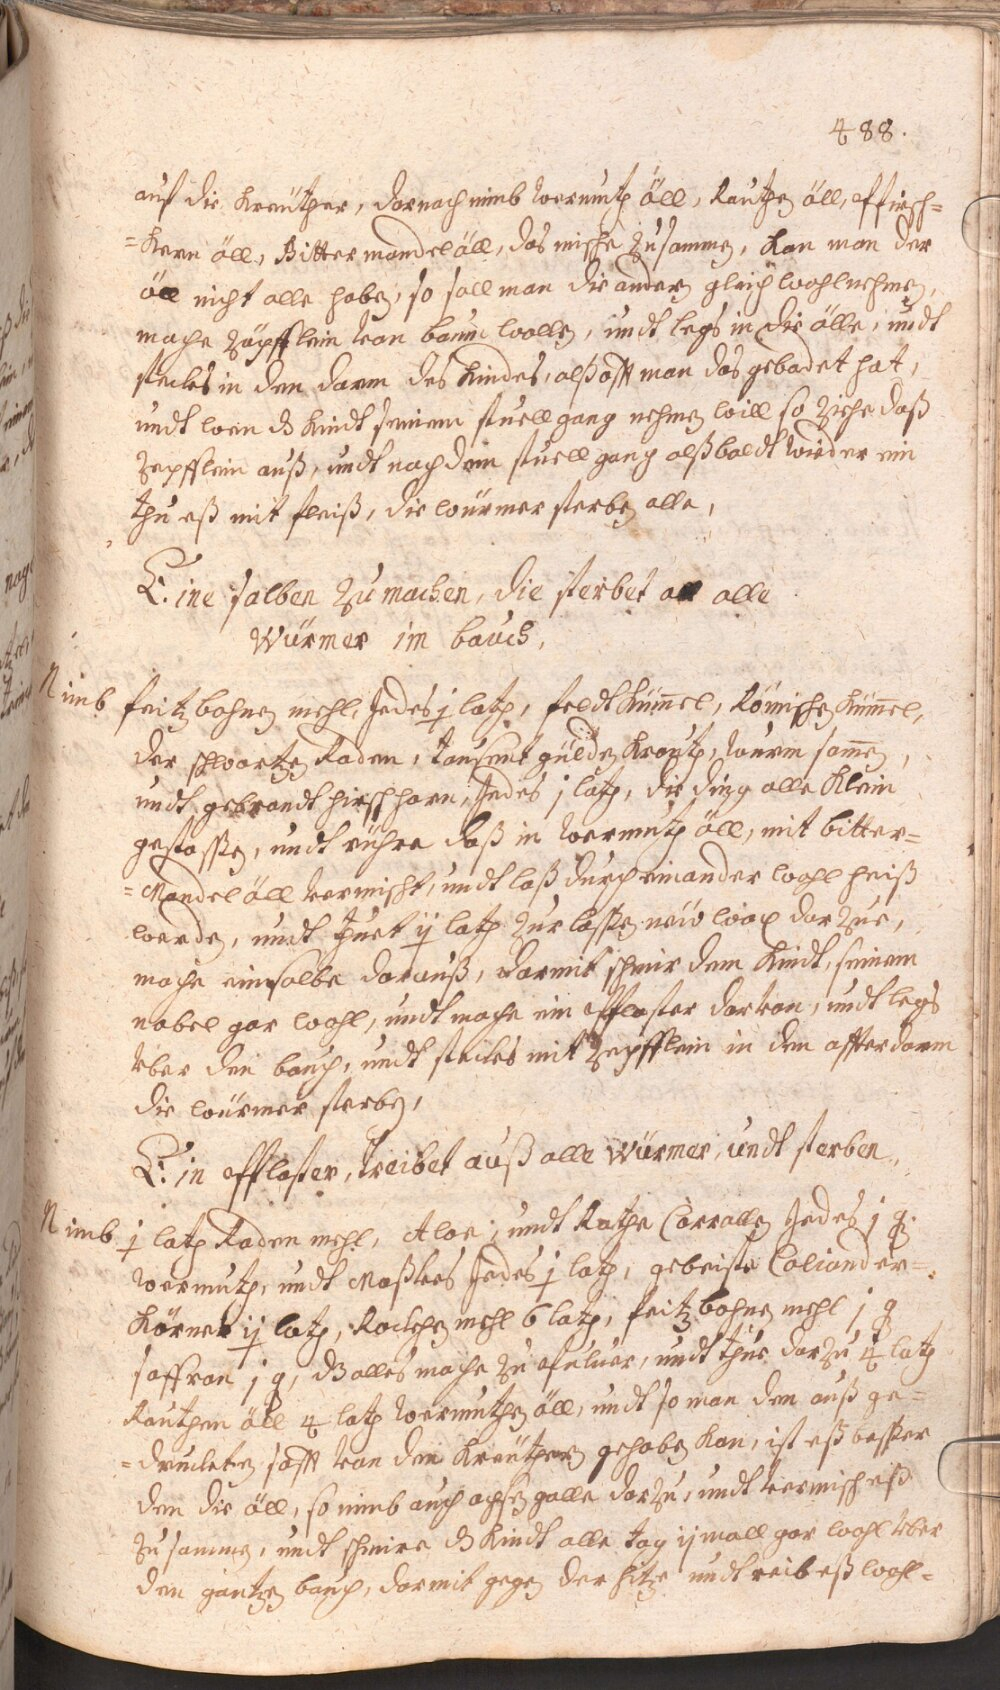 488.
auf die Kreüther, darnach nimb Wermuth öll, Rauthen öll, Pfirsch=
=Kern öll, Bittermandel öll, das mische zusammen, kan man der
öll nicht alle haben, so soll man die andern gleich wohl nehmen,
mache zäpfflein von baum wollen, undt legs in die ölle, undt
steckes in den darm des Kindes, alß offt man das gebadet hat,
undt wen dz Kindt seinem stuellgang nehmen will so ziehe daß
zepfflein auß, undt nach dem stuellgang alßbaldt wieder ein
thu eß mit fleiß, die würmer sterben alle,
Eine salben zu machen, die sterbet alle
würmer im bauch,
Nimb feitzbohnen mehl, Jedes j lath, feldt Kümel, Römischen Kümel,
der schwartzen Raden, tausent gülden Krauth, wurm samen,
undt gebrandt hirschhorn, Jedes j lath, die ding alle Klein
gestossen, undt rühre daß in Wermuth öll, mit bitter=
=Mandel öll vermischt, undt laß durcheinander wohl heiß
werden, undt thuet ij lath zurlassen neüw wax darzue,
mache ein salbe darauß, darmit schmir dem Kindt, seinem
nabel gar wohl, undt mache ein Pflaster darvon, undt legs
vber den bauch, undt steckes mit Zepfflein in den affterdarm
die würmer sterben,
Ein Pflaster, treibet auß alle würmer, undt sterben,
Nimb j lath Raden mehl, Aloe, undt Rothe Corallen Jedes j q.
Wermuth, undt Jedes j lath, gebeiste Coliander=
Körner ij lath, Rocken mehl 6 lath, feitzbohnen mehl j q
saffran j q, dz alles mache zu Pulver, undt thue darzu 4 lath
Rauthen öll 4 lath Wermuthen öll, undt so man den auß ge=
=druckten safft von den Kreüthern gehaben kan, ist eß besser
den die öll, so nimb auch ochsen galle darzu, undt vermisch eß
zusammen, undt schmire dz Kindt alle tag ij mall gar wohl vber
den gantzen bauch, darmit gegen der hitze undt reib eß wohl=